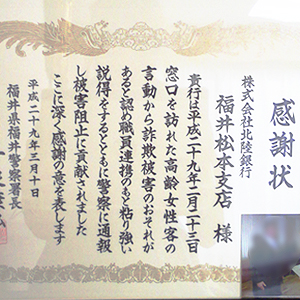 感謝状
株式会社北陸銀行
福井松本支店 様
貴行は平成二十九年二月二十三日
窓口を訪れた高齢女性客の
言動から詐欺被害のおそれが
あると認め職員連携のもと粘り強い
説得をするとともに警察に通報
し被害阻止に貢献されました
ここに深く感謝の意を表します
平成二十九年三月十日
福井県福井警察署長